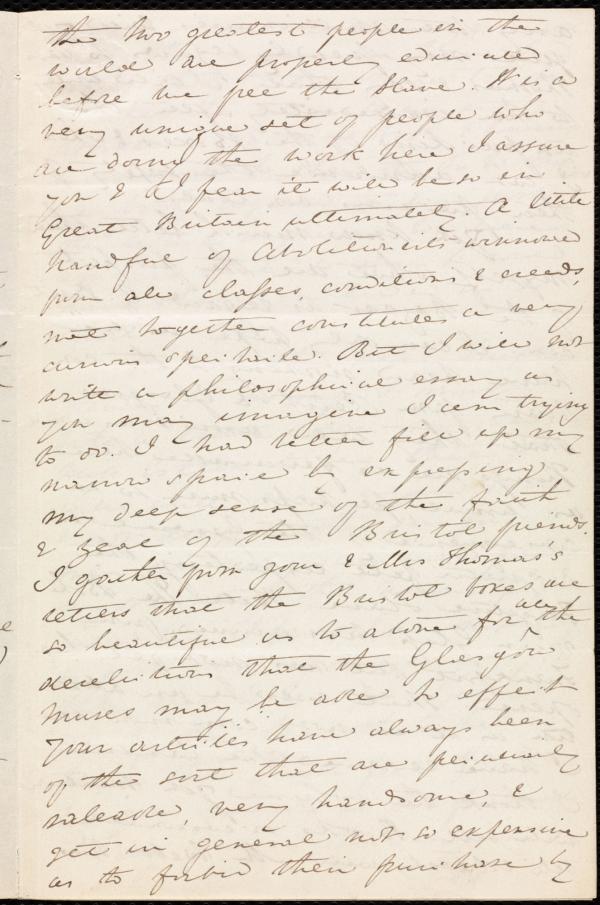 the two greatest people in the
world are properly educated
before we free the Slave. It is a
very unique set of people who
are doing the work here I assure
you & I fear it will be so in
Great Britain ultimately. A little
handful of Abolitionists winnowed
from all classes, conditions & creeds,
met together constitutes a very
curious spectacle. But I will not
write a philosophical essay as
you may imagine I am trying
to do. I had better fill up my
narrow space by expressing
my deep sense of the faith
& zeal of the Bristol friends.
I gather from your & Mrs Thomas's
letters that the Bristol boxes are
so beautiful as to atone for all the
derelictions that the Glasgow
Muses may be able to effect
Your articles have always been
of the sort that are peculiarly
saleable, very handsome, &
yet in general not so expensive
as to forbid their purchase by